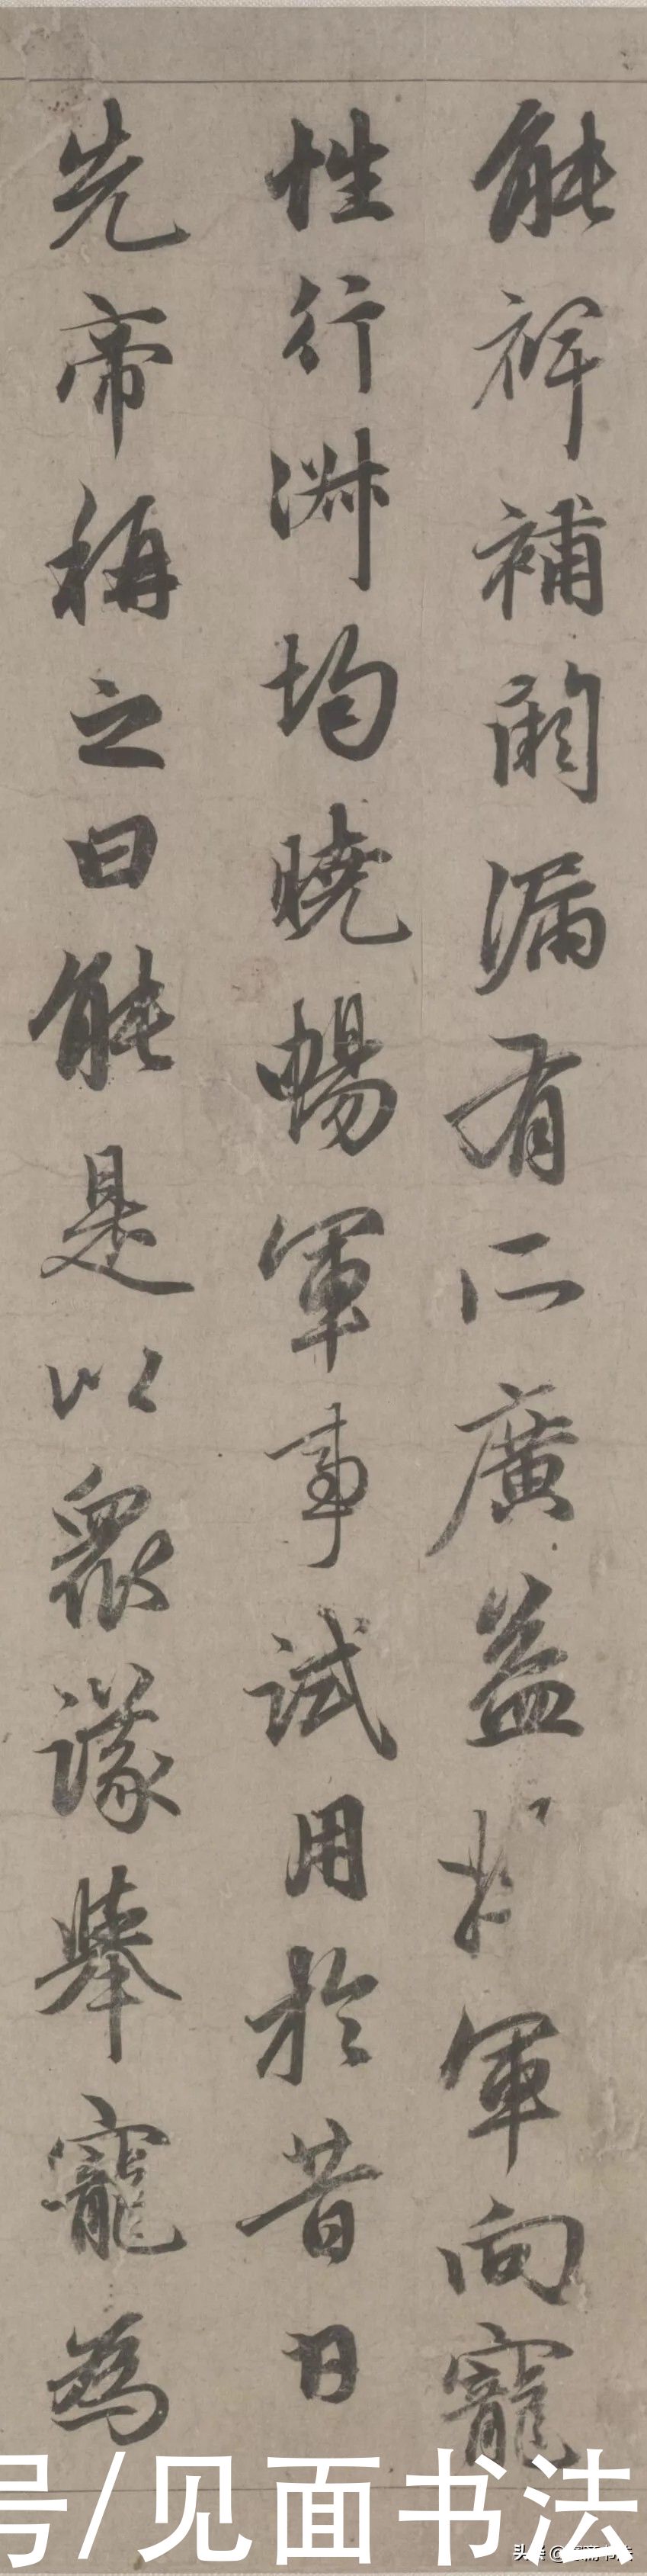 能裨補闕漏有所廣益将軍向寵
性行淑均曉暢軍事試用於昔日
先帝稱之曰能是以衆議舉寵為
号/见面书法
头条@